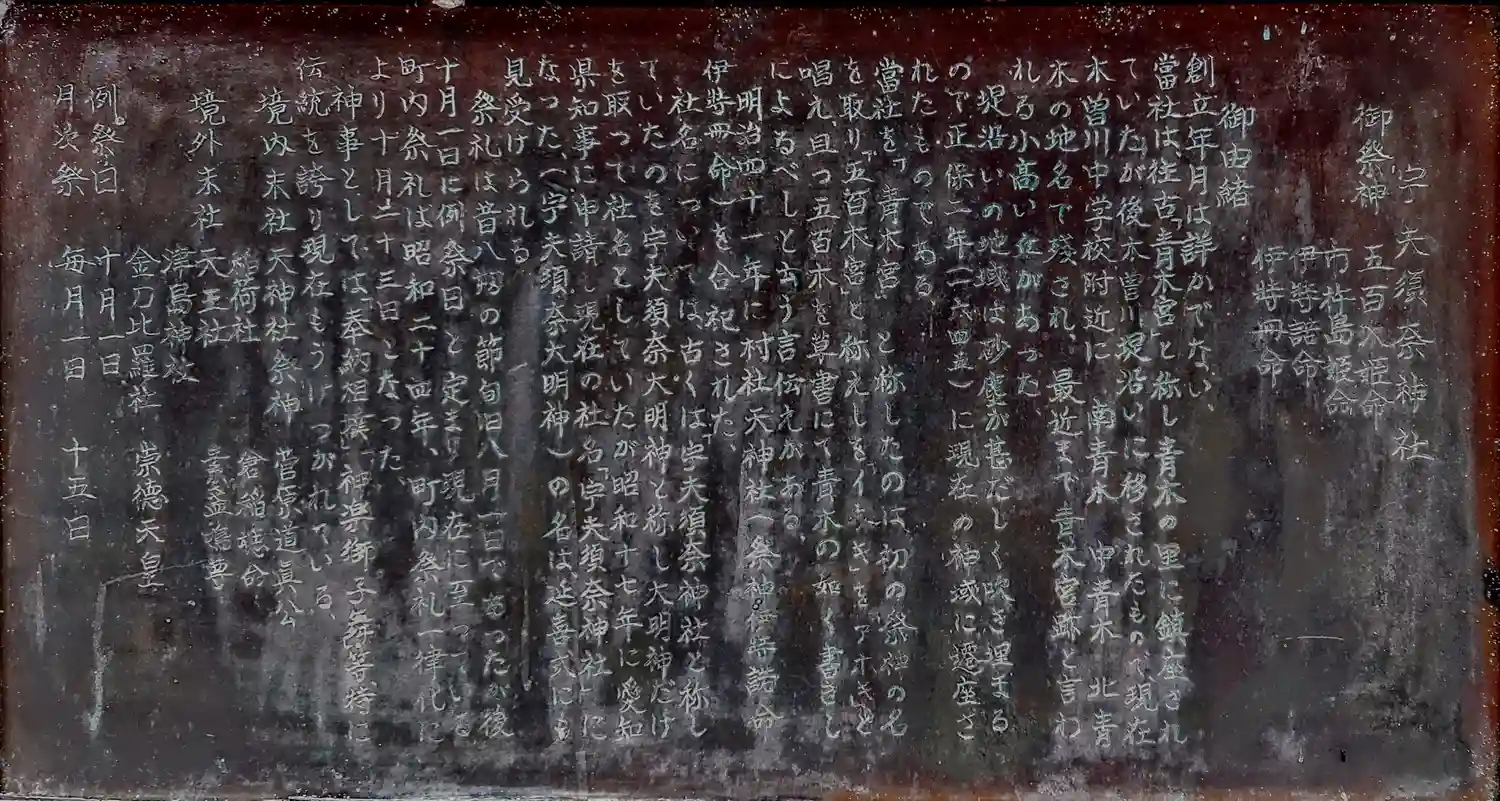 宇夫須奈神社
御祭神 五百木姫命
市杵島姫命
伊弉諾命
伊弉冊命
御由緒
創立年月は詳かでない、
當社は往古「青木宮」と称し青木の里に鎮座され
ていたが後木曽川現沿いに移されたもので、現在
木曽川中学校附近に 南青木 中青木 北青
木の地名で残され、最近まで青木宮跡と言わ
れる小高い丘があった
堤沿いの地域は砂塵が甚だしく吹き埋まる
ので正保二年(一六四五)に現在の神域に遷座さ
れたものである
當社を「青木宮」と称したのは初の祭神の名
を取り「五百木宮」と称えしをイホキをアオキと
唱え、且つ五百木を草書にて青木の如く書きし
によるべしと云う言伝えがある、
明治四十一年に村社天神社(祭神伊弉諾命
伊弉冊命)を合祀された、
社名については古くは宇夫須奈神社と称し
ていたのを宇夫須奈大明神と称し大明神だけ
を取って社名としていたが昭和十七年に愛知
県知事に申請し現在の社名「宇夫須奈神社」に
なった、(宇夫須奈大明神)の名は延喜式にも
見受けられる
祭礼は昔八朔の節句旧八月一日であったが後
十月一日に例祭日と定まり現在に至っている
町内祭礼は昭和二十四年、町内祭礼一律化に
より十月二十三日となった、
神事としては「奉納相撲」神楽獅子舞等特に
伝統を誇り現在もうけつがれている、
境内末社 天神社 祭神 菅原道眞公
稲荷社 倉稲魂命
境外末社 天王社
津島神社
金刀比羅社 崇徳天皇
例祭日 十月一日
月次祭 毎月一日 十五日